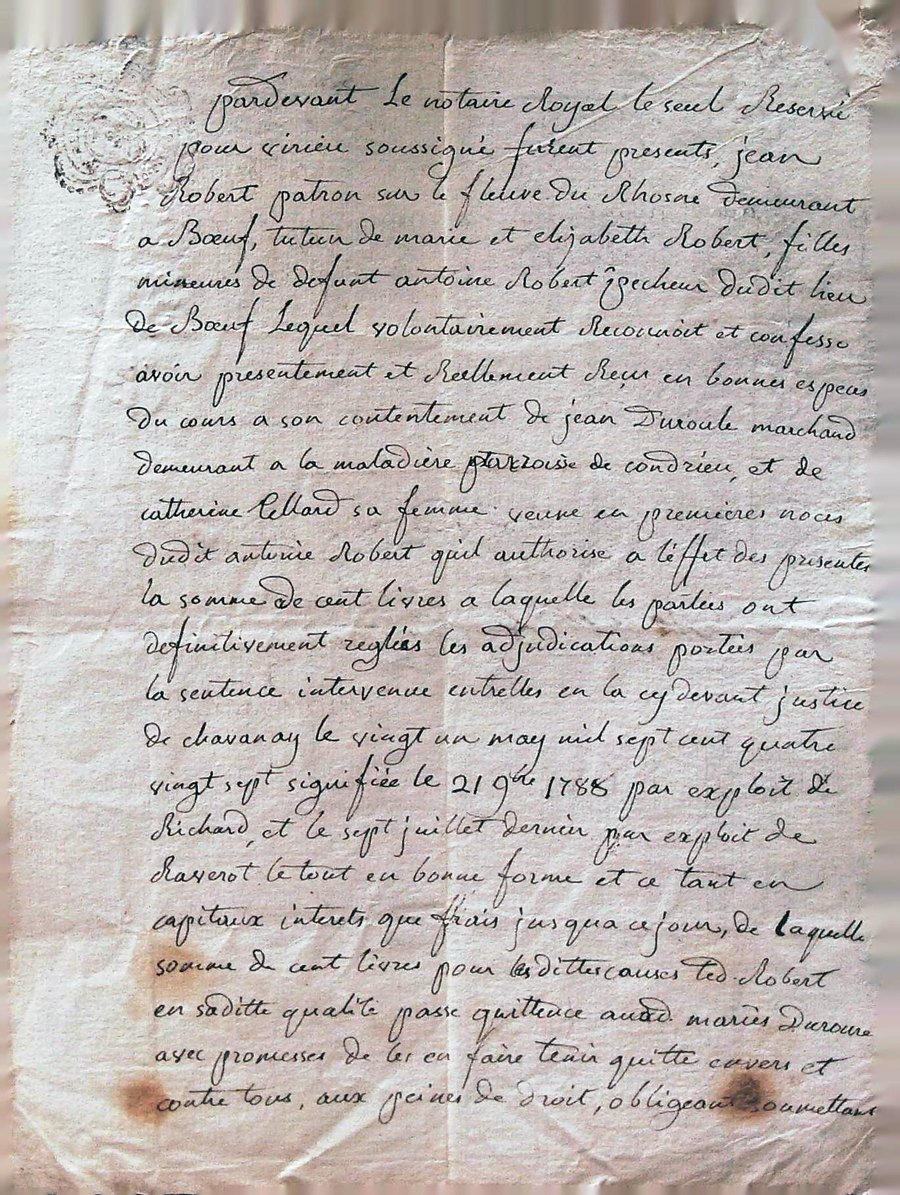 pardevant Le notaire Royal le seul Reservé
pour virieu soussigné furent presents, jean
Robert patron sur le fleuve du Rhosne demeurant
a Bœuf, tuteur de marie et elizabeth Robert, filles
mineures de defunt antoine Robert pecheur dudit lieu
de Bœuf Lequel volontairement Reconnoit et confesse
avoir presentement et Reellement Reçu en bonnes especes
du cours a son contentement de jean Duroule marchand
demeurant a la maladière parroisse de condrieu, et de
catherine Cellard sa femme veuve en premieres noces
dudit antoine Robert qu'il authorise a l'effet des presentes
la somme de cent livres a laquelle les parties ont
definitivement reglés les adjudications portées par
la sentence intervenue entrelles en la cy devant justice
de chavanay le vingt un may mil sept cent quatre
vingt sept signifiée le 21 9bre 1788 par exploit de
Richard, et le sept juillet dernier par exploit de
Raverot le tout en bonne forme et ce tant en
capitaux interets que frais jusqua ce jour, de laquelle
somme de cent livres pour lesdittes causes led. Robert
en saditte qualité passe quittence auxd. mariés Duroure
avec promesses de les en faire tenir quitte envers et
contre tous, aux peines de droit, obligeant soumettant